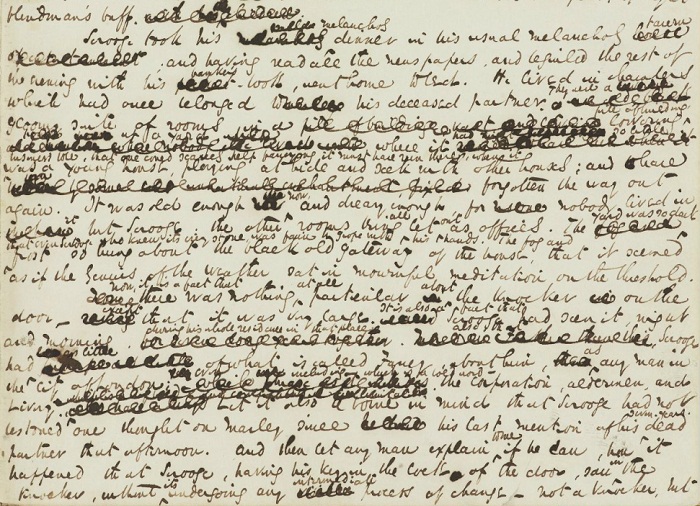 blindman's buff.
Scrooge took his melancholy dinner in his usual melancholy tavern
and having read all the newspapers, and beguiled the rest of
the evening with his banker's book, went home to bed. He lived in chambers
which had once belonged to his deceased partner. They were a
gloomy suite of rooms in a lowering
pile of building up a yard, where it had so little
business to be, that one could scarcely help fancying it must have run there when it
was a young house, playing at hide and seek with other houses, and have
forgotten the way out
again. It was old enough now, and dreary enough, for nobody lived in
it but Scrooge, the other rooms being all let out as offices. The yard was so dark
that even Scrooge, who knew its every stone, was fain to grope with his hands. The fog and
frost so hung about the black old gateway of the house, that it seemed
as if the Genius of the Weather sat in mournful meditation on the threshold
Now, it is a fact that
there was nothing at all particular about the knocker on the
door except that it was very large. It is also a fact that had seen it, night
and morning, during his whole residence in that place, also that Scrooge
had as little of what is called fancy about him, as any man in
the City of London, even including which is a bold word the corporation, aldermen, and
Livery. Let it also be borne in mind that Scrooge had not
bestowed one thought on Marley since his last mention of his seven-years dead
partner that afternoon. And then let any man explain to me if he can, how it
happened that Scrooge, having his key in the lock of the door, saw in the
knocker, without its undergoing any intermediate process of change - not a knocker, but